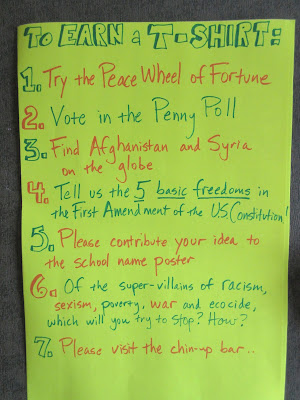 TO EARN a T-SHIRT:
1. Try the Peace Wheel of Fortune
2. Vote in the Penny Poll
3. Find Afghanistan and Syria
on the globe
4. Tell us the 5 basic freedoms in
the First Amendment of the U.S. Constitution!
5. Please contribute your idea to
the school name poster
6. Of the super-villains of racism,
sexism, poverty, war and ecocide,
which will you try to stop? How?
7. Please visit the chin-up bar..